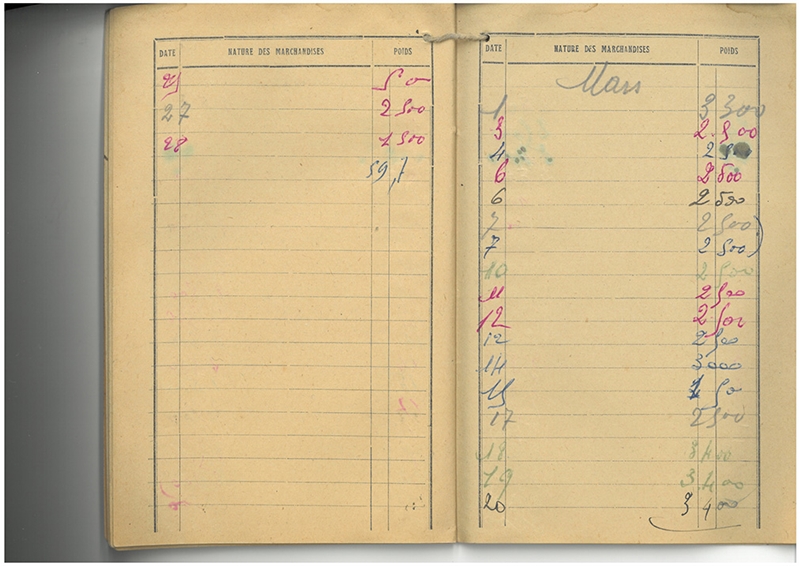 DATE NATURE DES MARCHANDISES POIDS
25 500
27 2 500
28 1 500
59,
DATE NATURE DES MARCHANDISES POIDS
Mars
1 3 300
3 2.500
4 2 500
6 2 500
6 2 500
7 2 500)
7 2 500)
10 2 500
11 2 500
12 2 500
12 2 500
14 3000
15 500
17 2 500
18 3 400
19 3.400
20 3 400